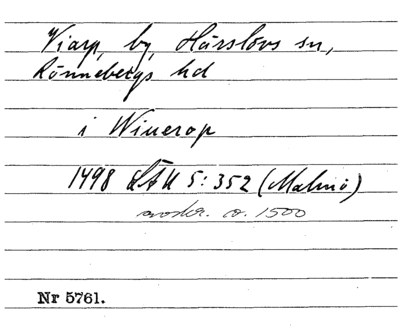 Viarp, by, Härslövs sn,
Rönnebergs hd
i Wiuerop
1498 LÅU 5:352 (Malmö)
avskr. o. 1500
Nr 5761.